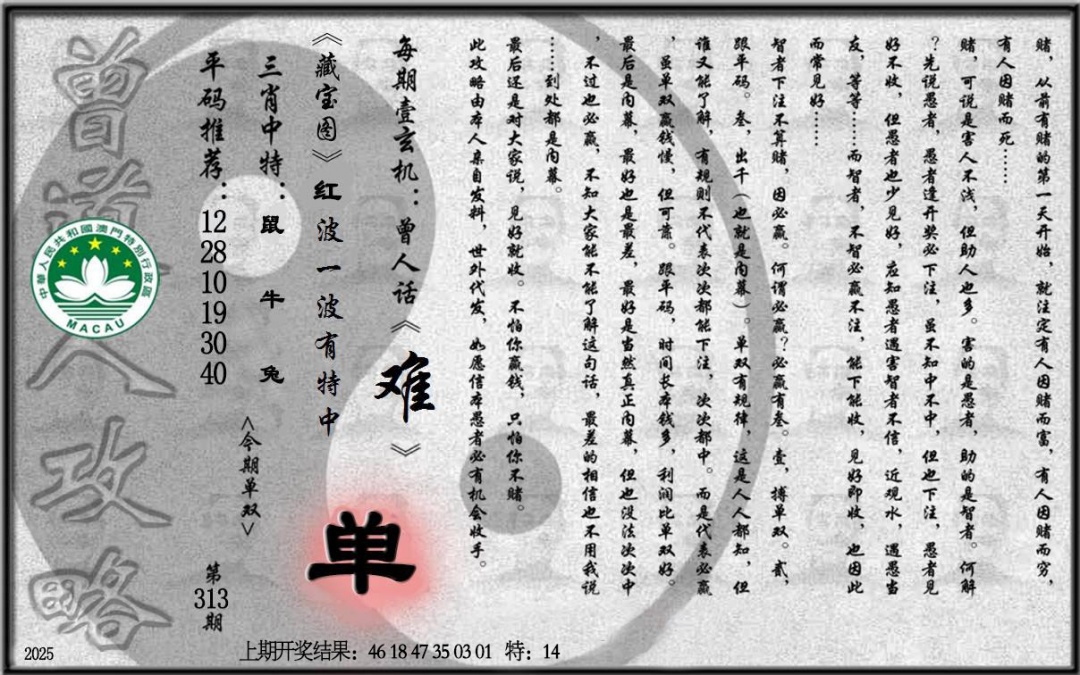 赌，从前有赌的第一天开始，就注定有人因赌而富，有人因赌而穷，
有人因赌而死……
赌，可说是害人不浅，但助人也多。害的是愚者，助的是智者。何解
？先说愚者，愚者逢开奖必下注，虽不知中不中，但也下注，愚者见
好不收，但愚者也少见好，应知愚者遇害智者不信，近观水，遇愚当
友，等等……而智者，不智必赢不注，能下能收，见好即收，也因此
而常见好……
智者下注不算赌，因必赢。何谓必赢？必赢有叁。壹，搏单双。贰，
跟单码。叁，出千（也就是内幕）。单双有规律，这是人人都知，但
谁又能了解，有规则不代表次次都能下注，次次都中。而是代表必赢
，虽单双赢钱慢，但可靠。跟单码，时间长本钱多，利润比单双好。
最后是内幕，最好也是最差，最好是当然真正内幕，但也没法次次中
，不过也必赢，不知大家能不能了解这句话，最差的相信也不用我说
……到处都是内幕。
最后还是对大家说，见好就收。不怕你赢钱，只怕你不赌。
此攻略由本人亲自发料，世外代发，如愿信本愚者必有机会收手。
每期壹玄机：曾人话《难》
《藏宝图》红波一波有特中
三肖中特：鼠 牛 兔
平码推荐：12 28 10 19 30 40
<今期单双>
单
第313期
曾道人攻略
中華人民共和國澳門特別行政區
MACAU
2025
上期开奖结果：46 18 47 35 03 01 特：14